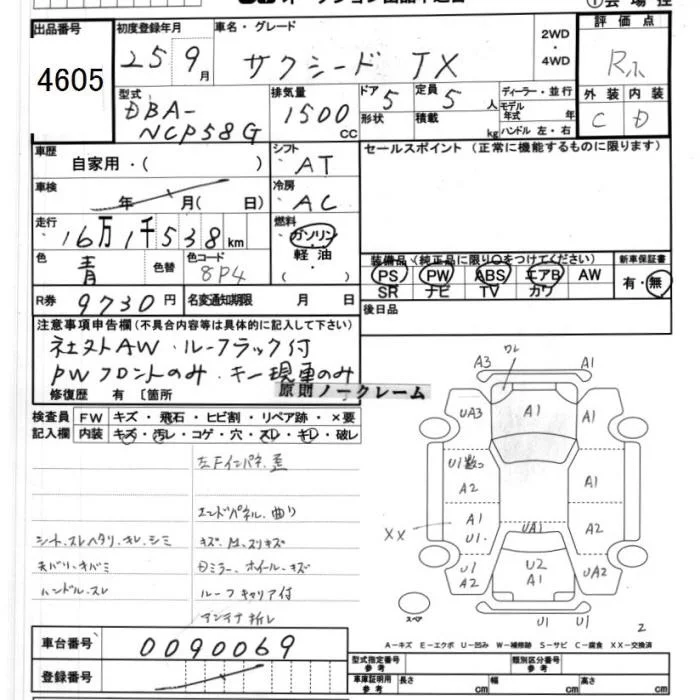 出品番号 初度登録年月 車名・グレード 2WD・4WD 評価点
4605 25年9月 サクシード TX R
外装 内装
C D
型式 排気量 ドア 定員 ディーラー・並行
DBA- 1500 cc 5 5人 モデル年式 年
NCP58G 形状 積載 kg ハンドル 左・右
車歴 シフト セールスポイント (正常に機能するものに限ります)
自家用・( ) AT
車検 冷房
年 月( 日) AC
走行 燃料
16万1千538km ガソリン
軽油
・( )
色 色替 色コード 装備品 (純正品に限り○をつけてください) 新車保証書
青 8P4 PS PW ABS エアB AW 有・無
SR ナビ TV カワ
R券 9730円 名変通知期限 月 日 後日品
注意事項申告欄(不具合内容等は具体的に記入して下さい)
社外AW・ルーフラック付
PWフロントのみ・キー現車のみ
修復歴 有 [ ]箇所 原則ノークレーム
検査員 FW キズ・飛石・ヒビ割・リペア跡・×要
記入欄 内装 キズ・汚レ・コゲ・穴・スレ・キレ・破レ
左Fインパネ歪
エンドパネル曲り
シート、スレヘタリ、キレ、シミ キズ、M、スリキズ
天バリ、キバミ Dミラー、ホイール、キズ
ハンドル、スレ ルーフキャリア付
アンテナ折レ
A3 ワレ A1
UA3 A1
U1数つ A2 A1
A1 U1 UA1 A2
XX
U1 A2 U2 A1 UA2
スペア U1 U1 2
A−キズ E−エクボ U−凹み W−補修跡 S−サビ C−腐食 XX−交換済
車台番号 0090069 型式指定番号 参考 類別区分番号 参考
登録番号 車庫証明用 参考 長さ cm 幅 cm 高さ cm